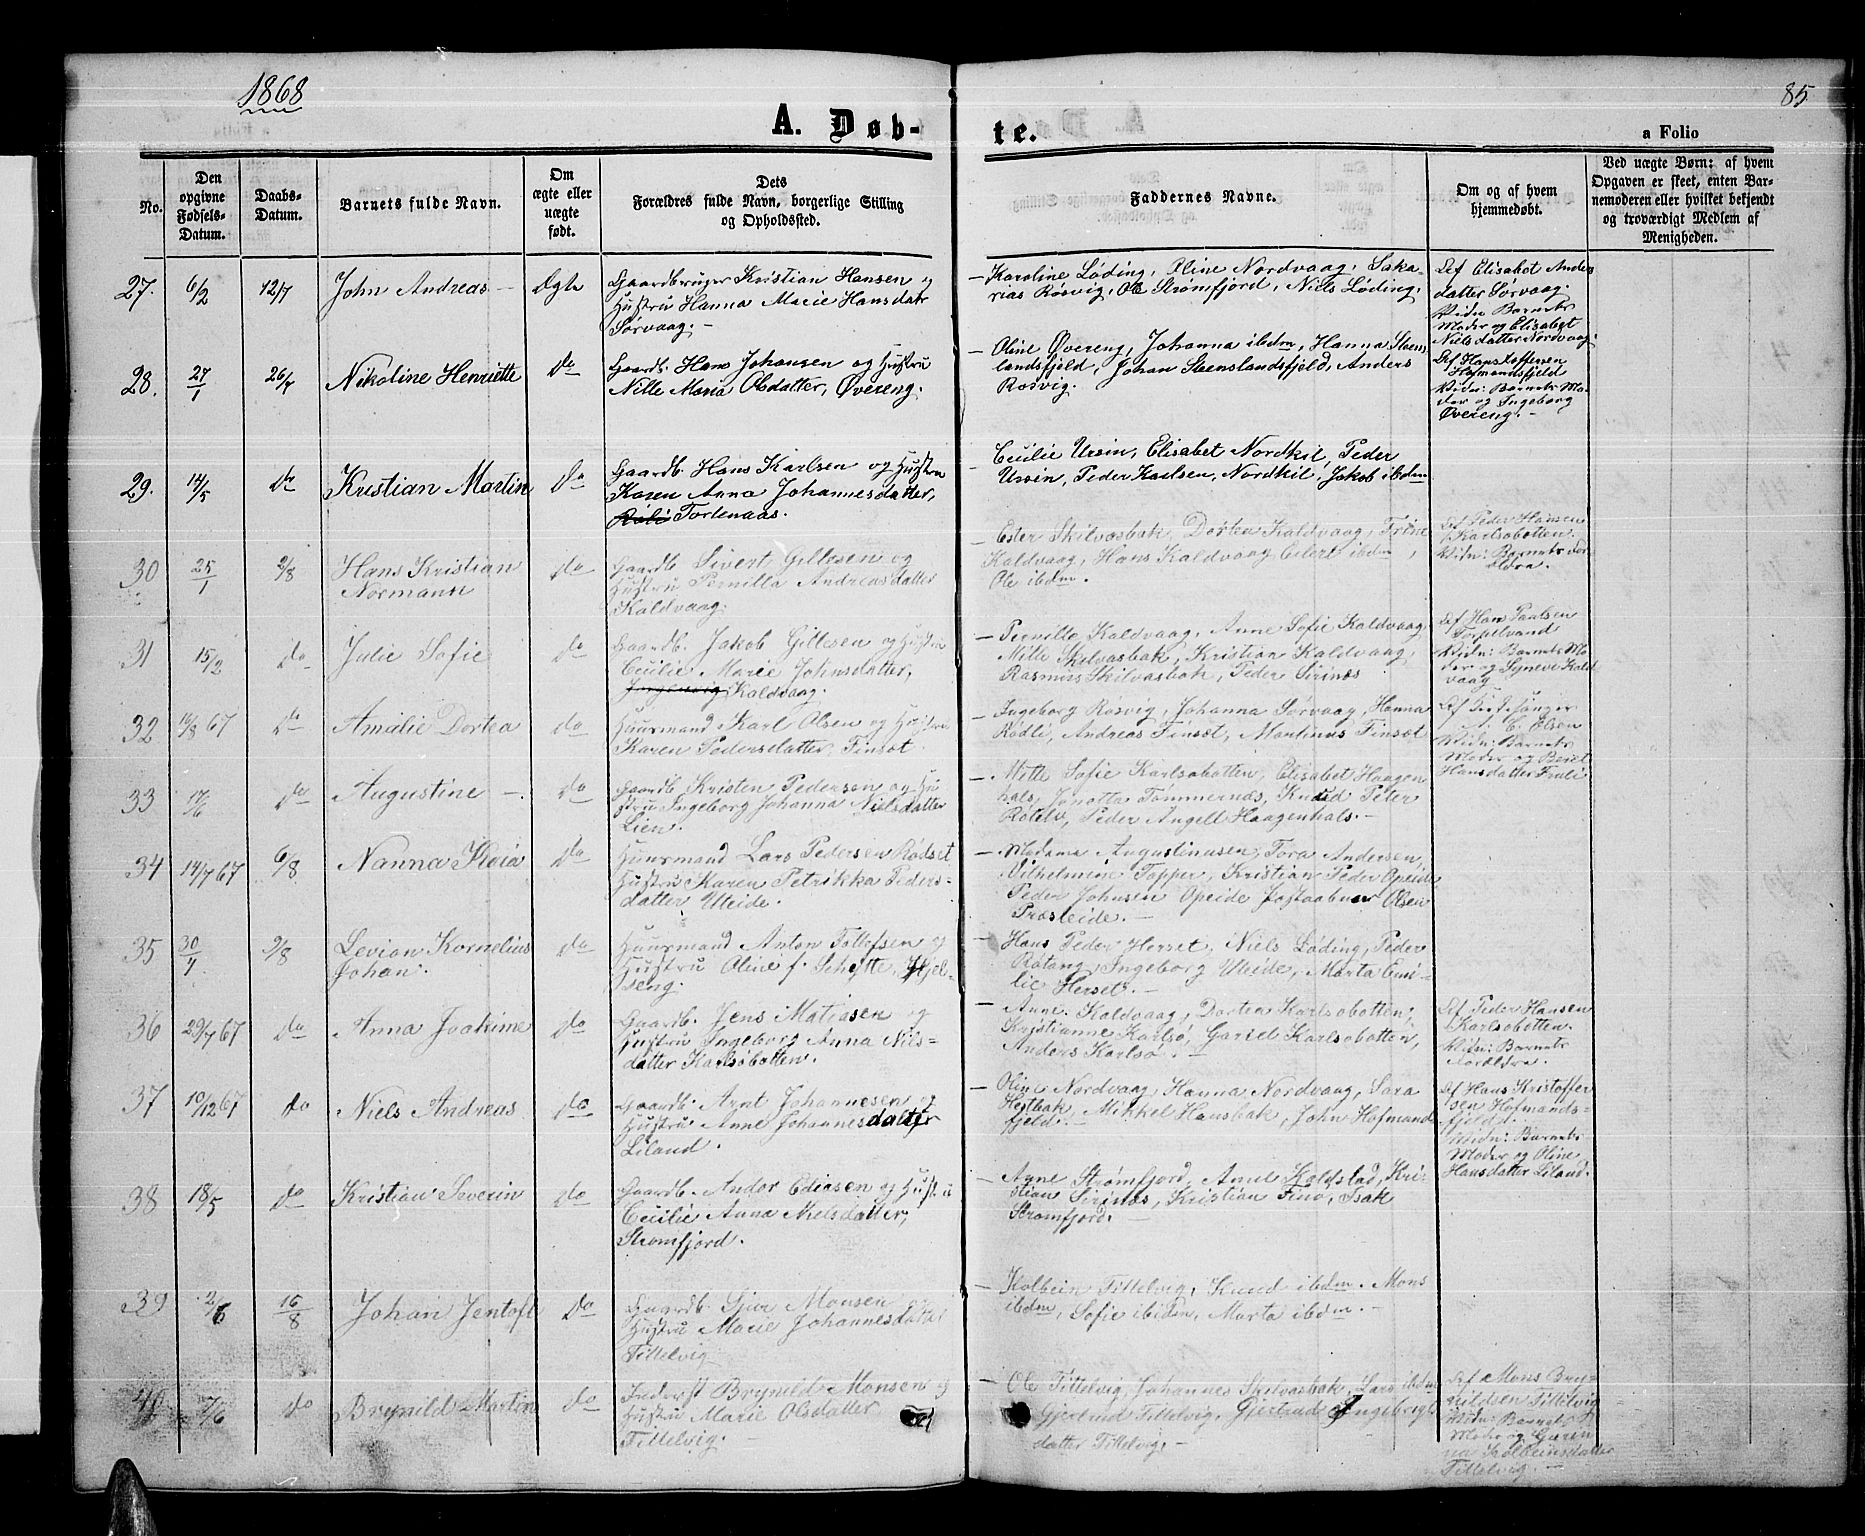 1868
85
A. Døb-
te.
a Folio
No.
Den
opgivne
Fødsels-
Datum.
Daabs-
Datum.
Barnets fulde Navn.
Om
ægte eller
uægte
født.
Dets
Forældres fulde Navn, borgerlige Stilling
og Opholdssted.
Faddernes Navne.
Om og af hvem
hjemmedøbt.
Ved uægte Børn: af hvem
Opgaven er skeet, enten Bar-
nemoderen eller hvilket bekjendt
og troværdigt Medlem af
Menigheden.
27. 6/2 12/7 John Andreas - Ægte
Gaardbruger Kristian Hansen og
Hustru Hanna Marie Hansdatr
Sørvaag. -
- Karoline Løding, Oline Nordvaag, Saka-
rias Røsvig, Ole Strømfjord, Niels Løding.
Af Elisabet Anders
datter Sørvaag.
Vidn: Barnets
Moder og Elisabet
Nielsdatter Nordvaag
28. 27/1 26/7 Nikoline Henriette Do
Gaardb. Hans Johansen og Hustru
Nille Maria Olsdatter, Øvereng.
- Oline Øvereng, Johanna ibdm, Hanna Steens
landsfjeld, Johan Steenslandsfjeld, Anders
Rosvig.
Af Hans Toffesen
Hofmandsfjeld
Vidn: Barnets Mo-
der og Ingeborg
Øvereng. -
29. 14/5 Do Kristian Martin Do
Gaardb. Hans Karlsen og Hustru
Karen Anna Johannesdatter,
Rødli Tortenaas.
- Cecilie Ursin, Elisabet Nordkil, Peder
Ursin, Peder Karlsen, Nordkil, Jakob ibdm
30 25/1 2/8 Hans Kristian
Normann Do
Gaardb Sivert Gillesen og
Hustru Pernilla Andreasdatter
Kaldvaag.
- Ester Skilvasbak, Dortea Kaldvaag, Trine
Kaldvaag, Hans Kaldvaag, Edert ibdm,
Ole ibdm.
Af Peder Hansen
Karlsobotten.
Vidn: Barnets For-
eldra.
31 15/2 Do Julie Sofie Do
Gaardb. Jakob Gillesen og Hustru
Cecilie Marie Johnsdatter,
Kaldvaag.
- Pernille Kaldvaag, Anne Sofie Kaldvaag
Mille Skilvasbak, Kristian Kaldvaag,
Rasmus Skilvasbak, Peder Sirinæs
Af Hans Paulsen
Torpelvand
Vidn: Barnets Mo-
der og Synneve Kald
vaag
32 16/8 67 Do Amalie Dortea Do
Huusmand Karl Olsen og Hustru
Karen Pedersdatter, Finsæt.
- Ingeborg Røsvig, Johanna Sørvaag, Hanna
Rødli, Andreas Finsæt, Martinus Finsæt
Af Kirkesanger
A. C. Olsen
Vidn: Barnets
Moder og Beret
Hansdatter
33 17/6 Do Augustine - Do
Gaardb Kristen Pedersen og Hu
stru Ingeborg Johanna Nielsdatter
Lien.
- Mille Sofie Karlsobotten, Elisabet Haagen
hals, Jonetta Tømmernæs, Knud Peter
Rotelv, Peder Angell Haagenhals. -
34 14/7 67 6/8 Nanna Kaia Do
Huusmand Lars Pedersen Rødset
Hustru Karen Petrikka Peders-
datter Uleide.
- Madama Augustinusen, Tora Andersen,
Vilhelmine Topper, Kristian Peder Opeide
Peder Johnsen Opeide Postaabner Olsen
Præsteide. -
35 30/7 2/8 Levion Kornelius
Johan. Do
Huusmand Anton Tollefsen og
Hustru Oline f. Schjette, Hjel-
seng.
- Hans Peder Herset, Niels Løding, Peder
Røtang, Ingeborg Uleide, Marta Emi-
lie Herset. -
36 29/7 67 Do Anna Joakime Do
Gaardb. Jens Matiasen og
Hustru Ingeborg Anna Nils-
datter Karlsobotten.
- Anne Kaldvaag, Dortea Karlsobotten,
Kristianne Karlsø, Gariel Karlsobotten,
Anders Karlsø. -
Af Peder Hansen
Karlsobotten.
Vidn: Barnets
Foreldra.
37 10/12 67 Do Niels Andreas Do
Gaardb. Arnt Johannesen og
Hustru Anne Johannesdatter
Liland.
- Oline Nordvaag, Hanna Nordvaag, Sara
Hestbak, Mikkel Hausbak, John Hofmands
fjeld. -
Af Hans Kristoffer
sen Hofmands-
fjeld.
Vidn: Barnets
Moder og Oline
Hansdatter Liland.
38 18/5 Do Kristian Severin Do
Gaardb. Andor Ediasen og Hustru
Cecilie Anna Nielsdatter,
Strømfjord.
- Anne Strømfjord, Anne Kaldstad, Kri-
stian Sirinæs, Kristian Finø, Isak
Strømfjord.
39 2/6 16/8 Johan Jentoft Do
Gaardb. Gjer Monsen
Hustru Marie Johannesdatter
Tittelvig
- Kolbein Tittelvig, Knud ibdm. Mons
ibdm, Sofie ibidem, Marta ibdm. -
40 7/6 Do Brynild Martin Do
Inderst Brynild Monsen og
Hustru Marie Olsdatter
Tittelvig.
- Ole Tittelvig, Johannes Skilvasbak, Lars ibdm
Gjertrud Tittelvig, Gjertrud Ingebrigt
datter Tittelvig. -
Af Mons Bry-
nildsen Tittelvig
Vidn: Barnets
Moder og
Kolbeinsdatter
Tittelvig. -